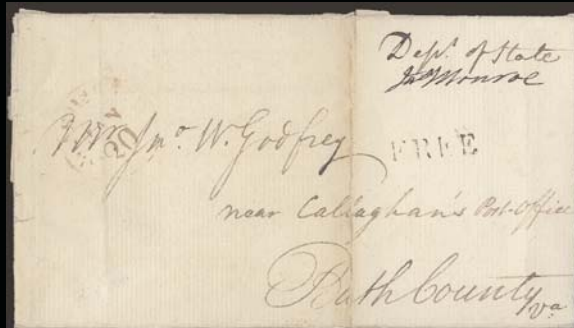 Dept. of State
Jas Monroe
FREE
Jno. W. Godfrey
near Callaghan's Post-Office
Bath County
Va